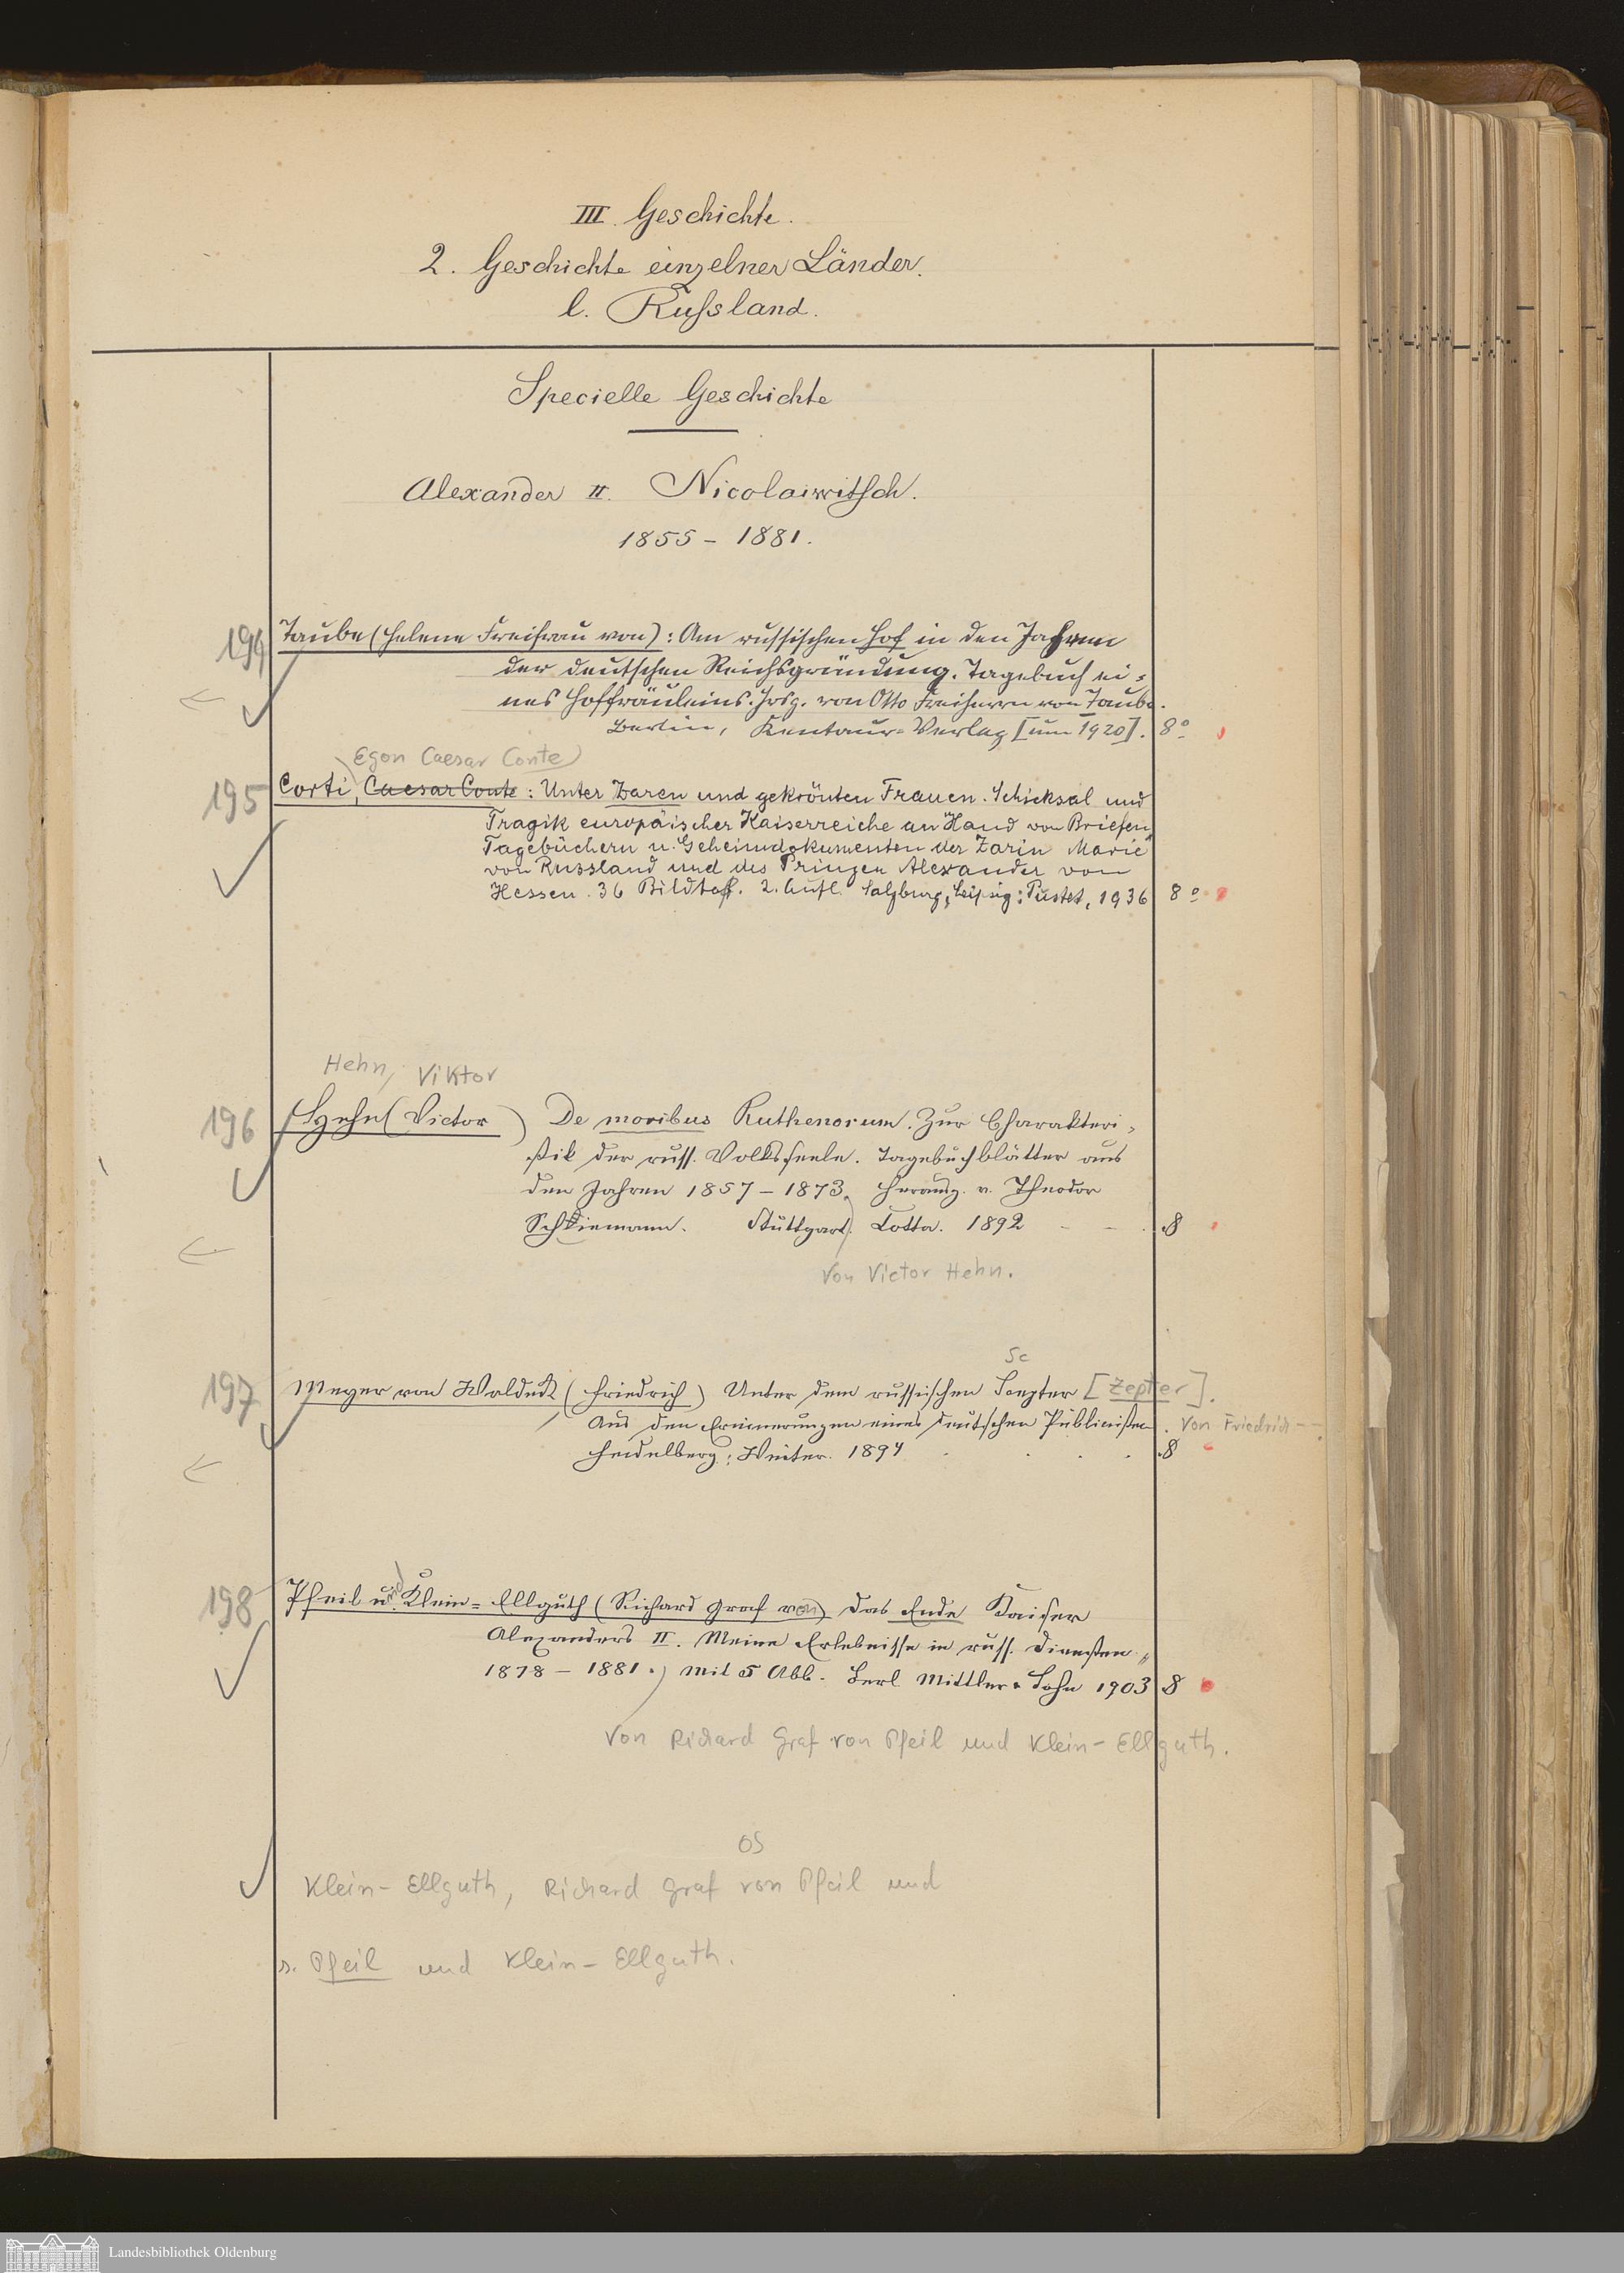 III. Geschichte.
2. Geschichte einzelner Länder.
l. Russland.
Specielle Geschichte
Alexander II. Nicolaiwitsch.
1855 - 1881.
194 Taube (Helene Freifrau von): Am russischen Hof in den Jahren
der deutschen Reichsgründung. Tagebuch ei=
nes Hoffräuleins. Hrsg. von Otto Freiherrn von Taube.
Berlin, Kentaur=Verlag [um 1920]. 8°
Egon Caesar Conte)
195 Corti, Caesar Conte: Unter Zaren und gekrönten Frauen. Schicksal und
Tragik europäischer Kaiserreiche an Hand von Briefen,
Tagebüchern u. Geheimdokumenten der Zarin Marie
von Russland und des Prinzen Alexander von
Hessen. 36 Bildtaf. 2. Aufl. Salzburg; Leipzig: Pustet, 1936 8°
Hehn, Viktor
196 Hehn (Victor) De moribus Ruthenorum. Zur Charakteri=
stik der russ. Volksseele. Tagebuchblätter aus
den Jahren 1857 - 1873. Herausg. v. Theodor
Schiemann. Stuttgart. Cotta. 1892 - - . 8
Von Victor Hehn.
Sc
197 Meyer von Waldeck (Friedrich) Unter dem russischen Scepter [Zepter].
Aus den Erinnerungen eines deutschen Publicisten. Von Friedrich --
Heidelberg: Winter. 1894 . . . . 8
198 Pfeil u. Klein=Ellguth (Richard Graf von) Das Ende Kaiser
Alexanders II. Meine Erlebnisse in russ. Diensten
1878 - 1881.) Mit 5 Abb. Berl Mittler & Sohn 1903 8
Von Richard Graf von Pfeil und Klein-Ellguth.
OS
Klein-Ellguth, Richard Graf von Pfeil und
s. Pfeil und Klein-Ellguth.
Landesbibliothek Oldenburg